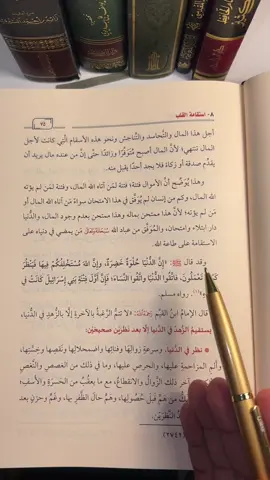 ٨- استقامة القلب
٧٥
أجل هذا المال والتحاسد والتباغض ونحو هذه الأسقام الَّتي كانت لأجل
المال تنتهي؛ لأنَّ المال أصبح متوفِّرًا وزائدًا حتَّى إنَّ من عنده مال يريد أن
يقدِّم صدقة أو زكاة فلا يجد أحدًا يقبل منه.
وهذا يُوضِّح أنَّ الأموال فتنة؛ فتنة لمَن أتاه الله المال، وفتنة لمن لم يؤته
الله المال، وكم من إنسان لم يُوفَّق في هذا الامتحان سواءً مَن أتاه الله المال أو
مَن لم يؤته؛ لأنَّ هذا ممتحن بماله وهذا ممتحن بعدم وجود المال، والدُّنيا
دار ابتلاء وامتحان، والموفَّق من عباد الله مَن يمضي في دنياه على
الاستقامة على طاعة الله.
وقد قال ﷺ: «إِنَّ الدُّنْيَا حُلْوَةٌ خَضِرَةٌ، وَإِنَّ اللهَ مُسْتَخْلِفُكُمْ فِيهَا فَيَنْظُرُ
كَيْفَ تَعْمَلُونَ، فَاتَّقُوا الدُّنْيَا وَاتَّقُوا النِّسَاءَ؛ فَإِنَّ أَوَّلَ فِتْنَةِ بَنِي إِسْرَائِيلَ كَانَتْ فِي
رواه مسلم.
قال الإمام ابنُ القيِّم رَحِمَهُ اللهُ: «لا تتمُّ الرَّغبةُ بالآخرة إلَّا بالزُّهد في الدُّنيا،
يستقيمُ الزُّهدُ في الدنيا إلَّا بعد نظرَيْن صحيحَيْن:
نظر في الدنيا، وسرعةِ زوالها وفنائها واضمحلالِها ونقصِها وخِسَّتِها،
وألمِ المزاحمةِ عليها، والحرصِ عليها، وما في ذلك من الغصص والنَّغصِ
آخر ذلك الزَّوالُ والانقطاعُ، مع ما يعقُبُ من الحَسرة والأسف؛
من هَمٍّ قبلَ حُصُولِها، وهمٍّ حالَ الظَّفر بها، وغمٍّ وحزنٍ بعد
النَّظرَيْن.